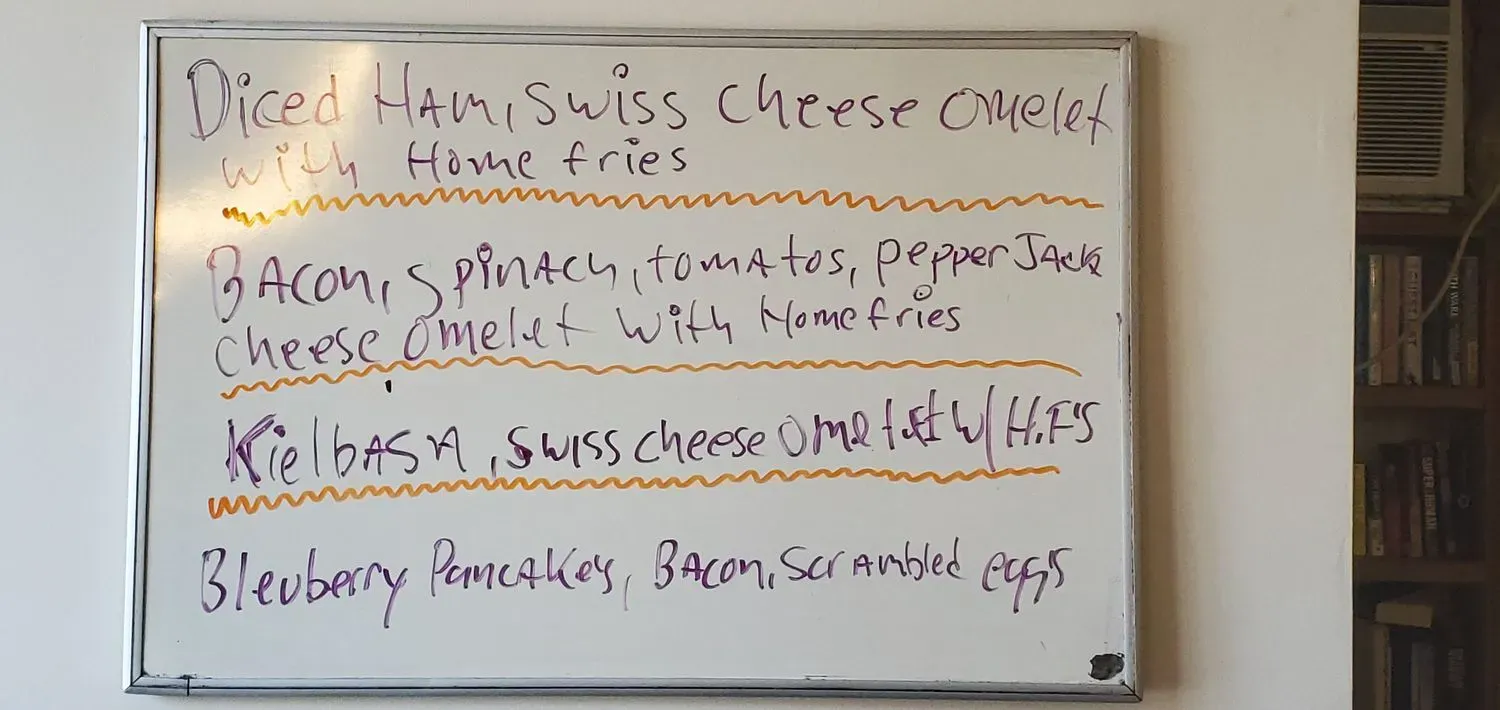 Diced HAM, Swiss Cheese Omelet
with Home fries
BACON, SPiNACH, tomAtos, PepperJACK
Cheese Omelet With Homefries
KielbASA, Swiss cheese Omelet W/ H.F'S
Bleuberry PancAkes, BAcon, ScrAmbled eggs
SUPER-HUMAN